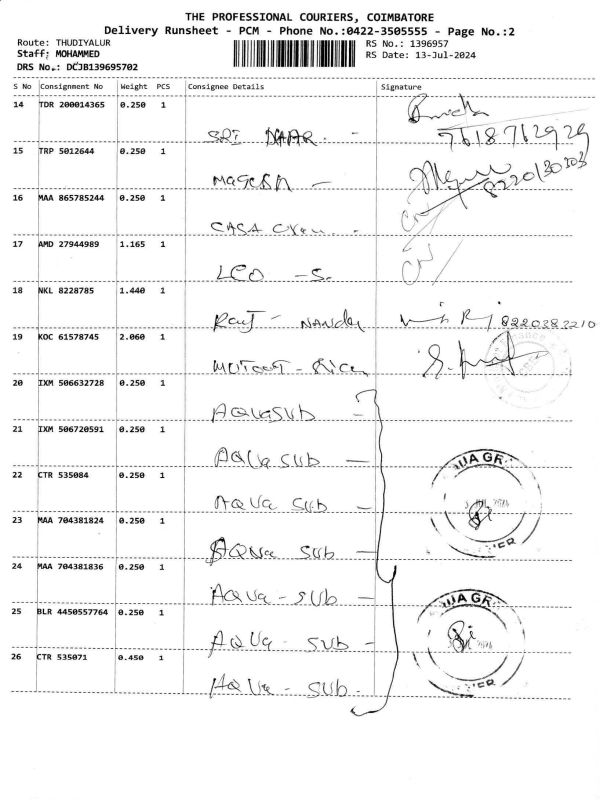 THE PROFESSIONAL COURIERS, COIMBATORE
Delivery Runsheet - PCM - Phone No.:0422-3505555 - Page No.:2
Route: THUDIYALUR
RS No.: 1396957
Staff: MOHAMMED
RS Date: 13-Jul-2024
DRS No.: DCJB139695702
S No Consignment No Weight PCS Consignee Details Signature
14 TDR 200014365 0.250 1
SRI
7618712929
15 TRP 5012644 0.250 1
8220130303
16 MAA 865785244 0.250 1
CASA
17 AMD 27944989 1.165 1
LEO - S.
18 NKL 8228785 1.440 1
8220383210
19 KOC 61578745 2.060 1
20 IXM 506632728 0.250 1
AQUASUB
21 IXM 506720591 0.250 1
AQUA SUB -
22 CTR 535084 0.250 1
AQUA SUB -
UA GR
23 MAA 704381824 0.250 1
AQUA SUB -
24 MAA 704381836 0.250 1
AQUA - SUB -
25 BLR 4450557764 0.250 1
AQUA - SUB -
UA GR
26 CTR 535071 0.450 1
AQUA - SUB.